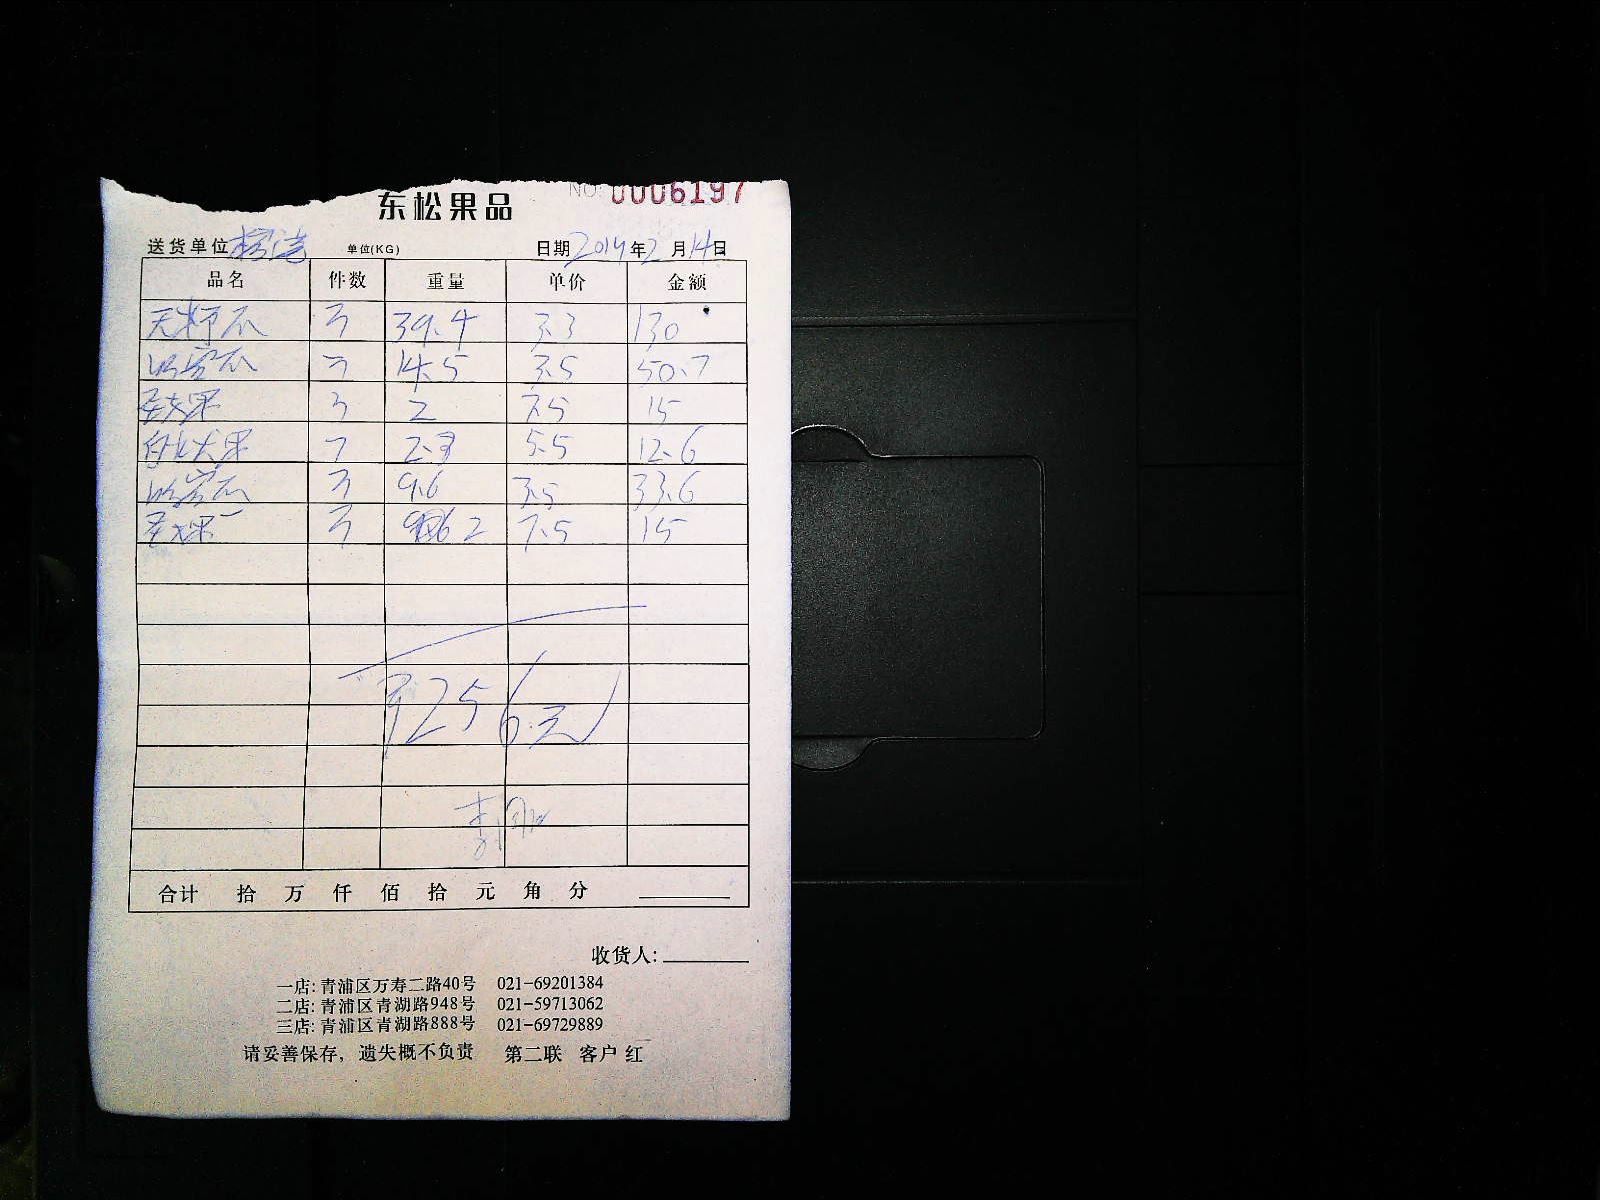 NO: 0006197
东松果品
送货单位 单位(KG) 日期 2014年2月14日
品名 件数 重量 单价 金额
无籽瓜 39.4 3.3 130
哈密瓜 14.5 3.5 50.7
圣女果 2 7.5 15
2.3 5.5 12.6
哈密瓜 9.6 3.5 33.6
圣女果 2 7.5 15
256.元
合计 拾 万 仟 佰 拾 元 角 分
收货人:
一店: 青浦区万寿二路40号 021-69201384
二店: 青浦区青湖路948号 021-59713062
三店: 青浦区青湖路888号 021-69729889
请妥善保存, 遗失概不负责 第二联 客户 红